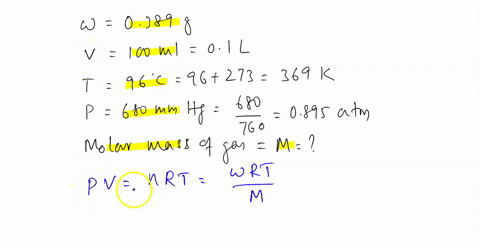 ω = 0.289 g
V = 100 ml = 0.1 L
T = 96°C = 96+273 = 369 K
P = 680 mm Hg = 680/760 = 0.895 atm
Molar mass of gas = M = ?
PV = nRT = ωRT/M